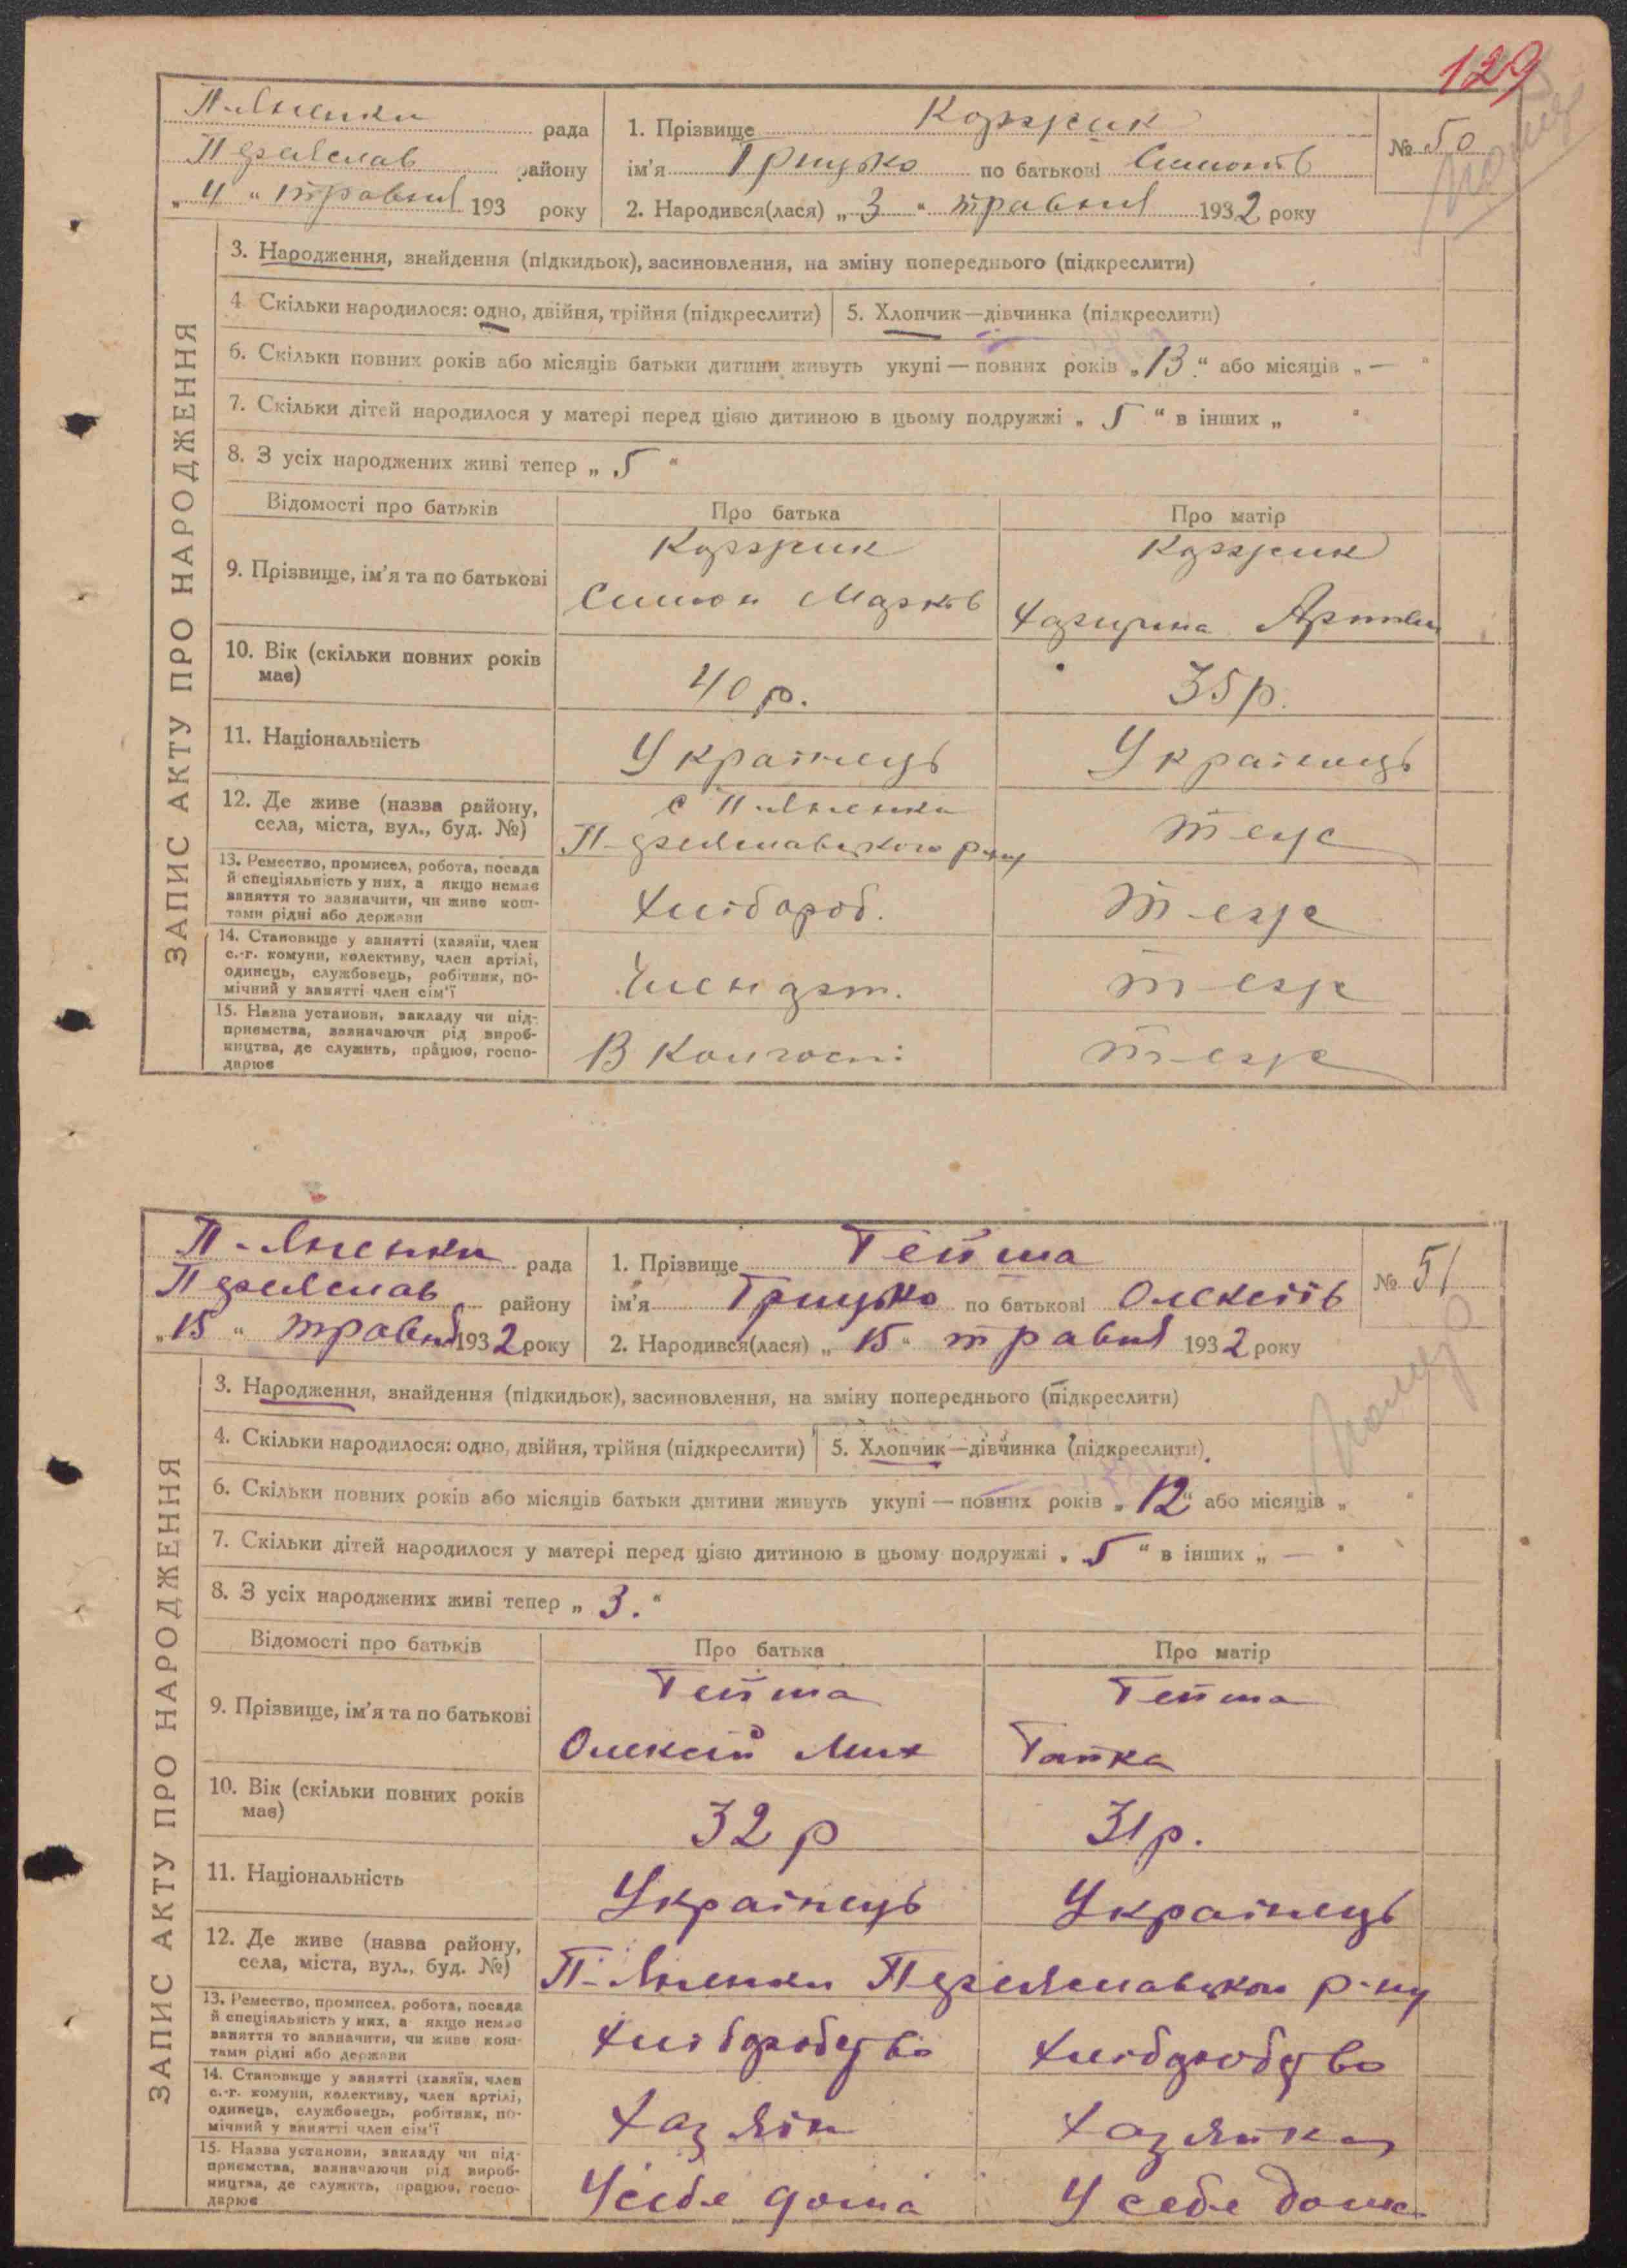 129
П-Лненки рада
Переяслав району
„4“ травня 193 року
1. Прізвище Коржик
ім'я Грицько по батькові Симонів
№ 50
2. Народився(лася) „3“ травня 1932 року
ЗАПИС АКТУ ПРО НАРОДЖЕННЯ
3. Народження, знайдення (підкидьок), засиновлення, на зміну попереднього (підкреслити)
4. Скільки народилося: одно, двійня, трійня (підкреслити)
5. Хлопчик—дівчинка (підкреслити)
6. Скільки повних років або місяців батьки дитини живуть укупі — повних років „13“ або місяців „—“
7. Скільки дітей народилося у матері перед цією дитиною в цьому подружжі „5“ в інших „ “
8. З усіх народжених живі тепер „5“
Відомості про батьків
Про батька
Про матір
9. Прізвище, ім'я та по батькові
Коржик
Симон Марків
Коржик
10. Вік (скільки повних років
має)
40 р.
35 р.
11. Національність
Українець
Українець
12. Де живе (назва району,
села, міста, вул., буд. №)
с
теж
13. Ремество, промисел, робота, посада
й спеціяльність у них, а якщо немає
заняття то зазначити, чи живе кош-
тами рідні або держави
Хлібороб.
теж
14. Становище у занятті (хазяїн, член
с.-г. комуни, колективу, член артілі,
одинець, службовець, робітник, по-
мічний у занятті член сім'ї
Член арт.
теж
15. Назва установи, закладу чи під-
приємства, зазначаючи рід вироб-
ництва, де служить, працює, госпо-
дарює
В Колгоспі
теж
рада
Переяслав району
„15“ травня 1932 року
1. Прізвище Гейша
ім'я Грицько по батькові Олексіїв
№ 51
2. Народився(лася) „15“ травня 1932 року
ЗАПИС АКТУ ПРО НАРОДЖЕННЯ
3. Народження, знайдення (підкидьок), засиновлення, на зміну попереднього (підкреслити)
4. Скільки народилося: одно, двійня, трійня (підкреслити)
5. Хлопчик—дівчинка (підкреслити).
6. Скільки повних років або місяців батьки дитини живуть укупі — повних років „12“ або місяців „ “
7. Скільки дітей народилося у матері перед цією дитиною в цьому подружжі „5“ в інших „—“
8. З усіх народжених живі тепер „3.“
Відомості про батьків
Про батька
Про матір
9. Прізвище, ім'я та по батькові
Гейша
Олексій Мих
Гейша
10. Вік (скільки повних років
має)
32 р
31 р.
11. Національність
Українець
Українець
12. Де живе (назва району,
села, міста, вул., буд. №)
Переяславськом р-ну
13. Ремество, промисел, робота, посада
й спеціяльність у них, а якщо немає
заняття то зазначити, чи живе кош-
тами рідні або держави
хліборобство
хліборобство
14. Становище у занятті (хазяїн, член
с.-г. комуни, колективу, член артілі,
одинець, службовець, робітник, по-
мічний у занятті член сім'ї
хазяїн
хазяйка
15. Назва установи, закладу чи під-
приємства, зазначаючи рід вироб-
ництва, де служить, працює, госпо-
дарює
У себе дома
У себе дома